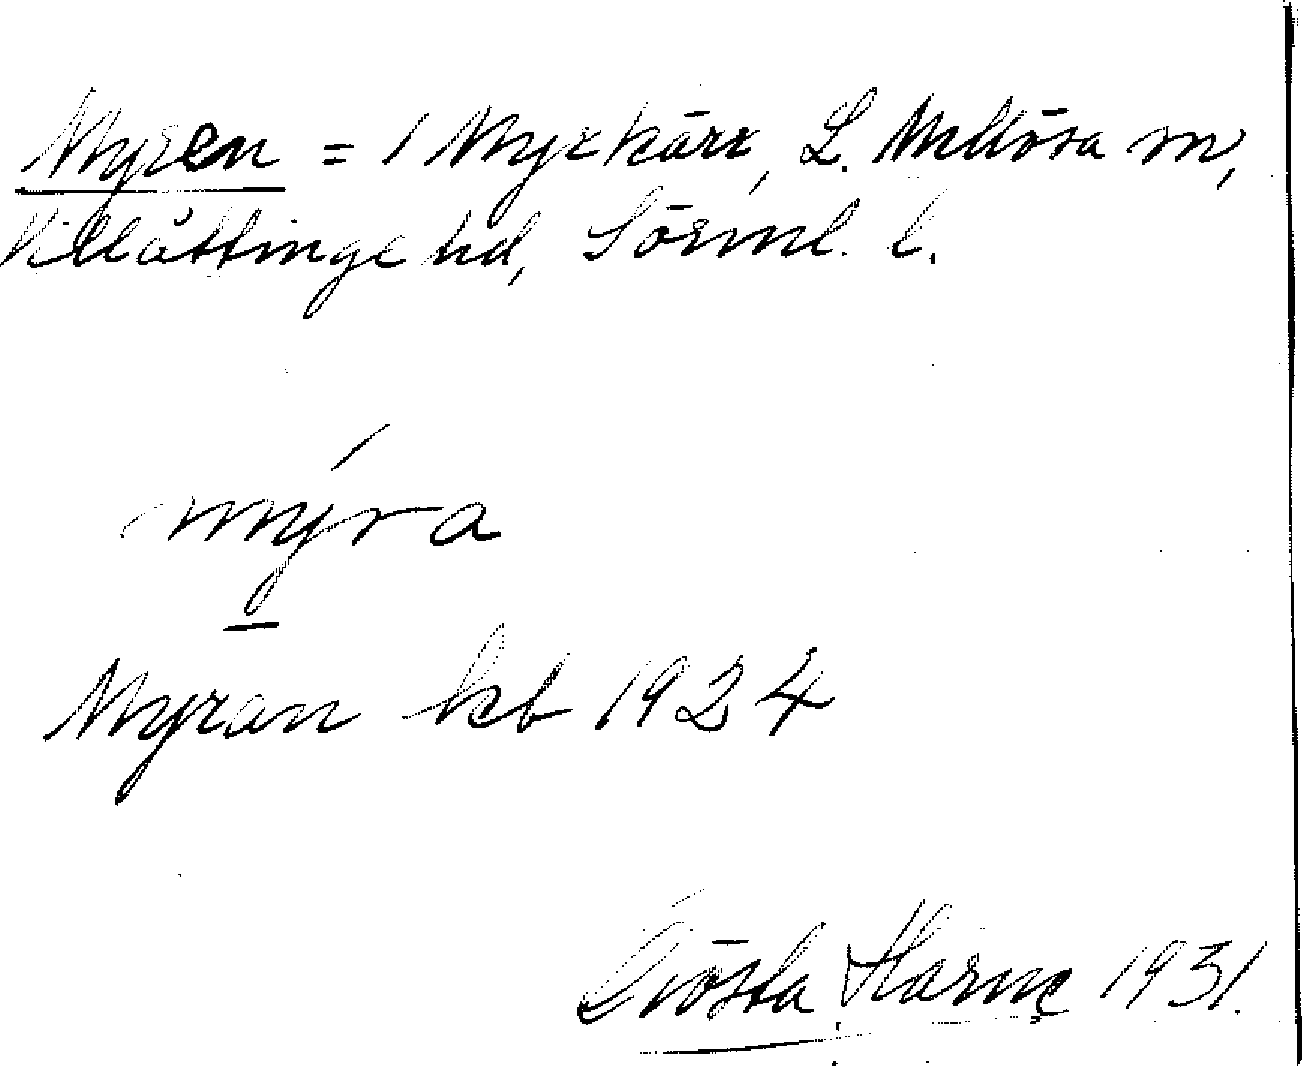 Myren = 1 Myrkärr, L. Mellösa sn,
Villåttinge hd, Sörml. l.
myra
Myran kb 1924
Gösta Harne 1931.